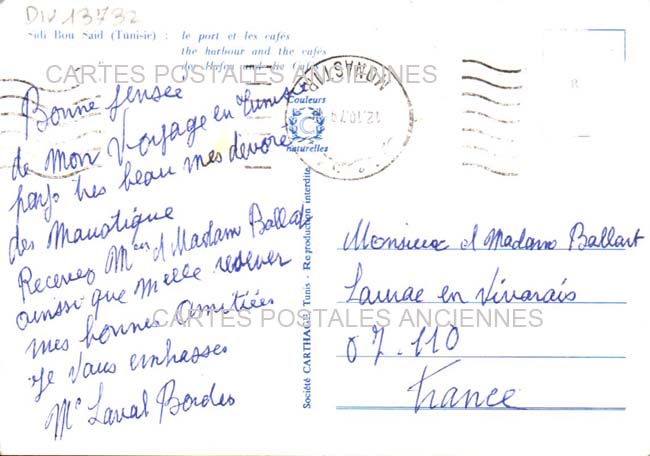 DIV 13732
Sidi Bou Said (Tunisie) : le port et les cafés
the harbour and the cafés
der Hafen und die Cafés
CARTES POSTALES ANCIENNES
MONASTIR
12.10.79
Couleurs
C
naturelles
R
Bonne pensée
de mon Voyage en Tunisie
pays tres beau mes dévoré
des Manotique
Recevez Mr d Madam Ballad
ainsi que Melle redever
mes bonnes amitiées
Je Vous embrasses
Me Laval Bordes
Société CARTHAGE, Tunis - Reproduction interdite
Monsieur d Madame Ballart
Lamae en Vivarais
07.110
France
CARTES POSTALES ANCIENNES